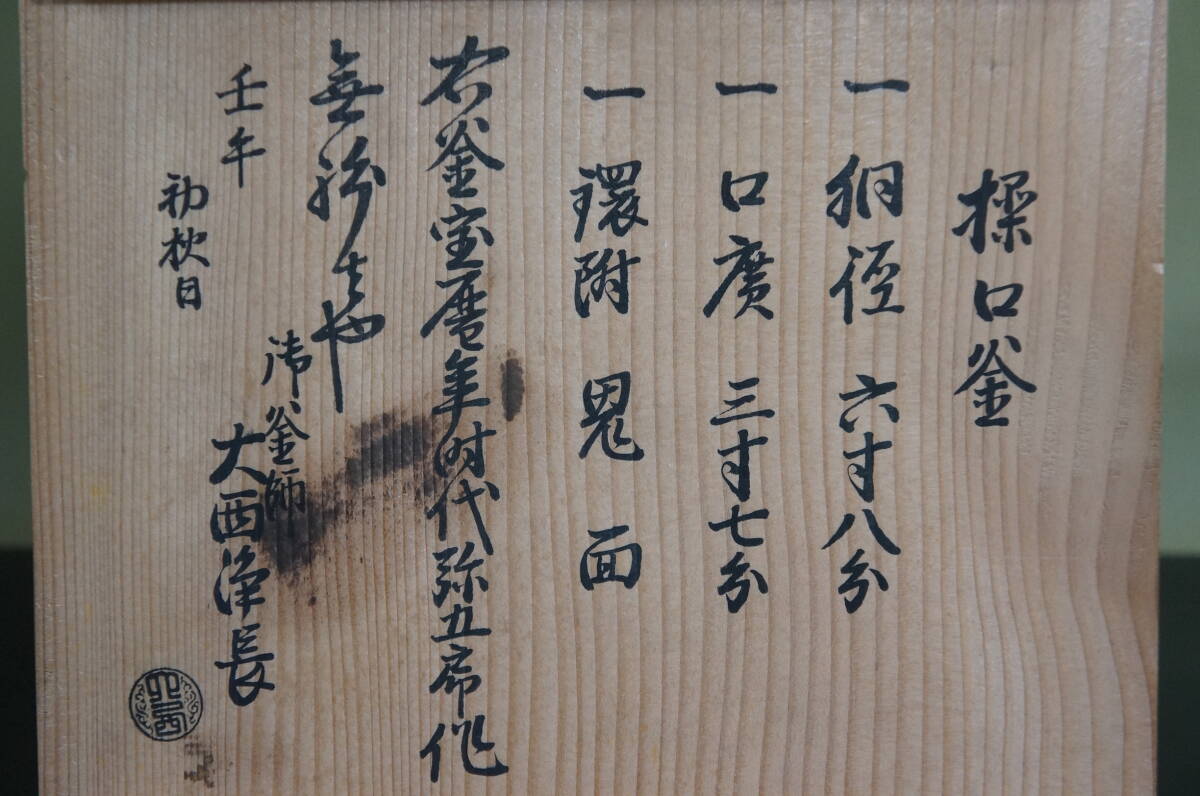 操口釜
一 胴径 六寸八分
一 口廣 三寸七分
一 環附 鬼面
右釜宝暦年時代弥五郎作
無紛者也
壬午
初秋日
御釜師
大西浄長
大西